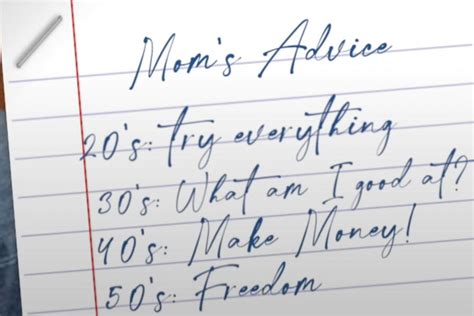 Mom's Advice
20's: try everything
30's: What am I good at?
40's: Make Money!
50's: Freedom